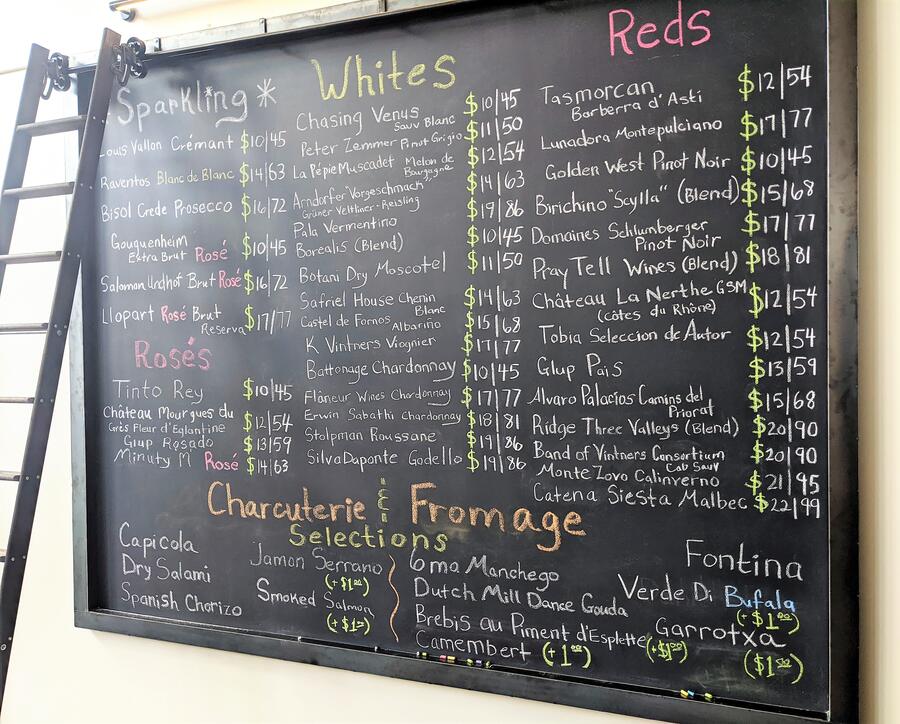 Sparkling *
Louis Vallon Crémant $10/45
Raventos Blanc de Blanc $14/63
Bisol Crede Prosecco $16/72
Gouguenheim
Extra Brut Rosé $10/45
Salomon Undhof Brut Rosé $16/72
Llopart Rosé Brut
Reserva $17/77
Rosés
Tinto Rey $10/45
Château Mourgues du
Grès Fleur d'Eglantine $12/54
Glup Rosado $13/59
Minuty M Rosé $14/63
Whites
Chasing Venus
Sauv Blanc $10/45
Peter Zemmer Pinot Grigio $11/50
La Pépie Muscadet Melon de
Bourgogne $12/54
Arndorfer "Vorgeschmack"
Grüner Veltliner-Reisling $14/63
Pala Vermentino $19/86
Borealis (Blend) $10/45
Botani Dry Moscotel $11/50
Safriel House Chenin
Blanc $14/63
Castel de Fornos Albariño $15/68
K Vintners Viognier $17/77
Battonage Chardonnay $10/45
Flâneur Wines Chardonnay $17/77
Erwin Sabathi Chardonnay $18/81
Stolpman Roussane $19/86
Silva Daponte Godello $19/86
Reds
Tasmorcan
Barberra d'Asti $12/54
Lunadora Montepulciano $17/77
Golden West Pinot Noir $10/45
Birichino "Scylla" (Blend) $15/68
Domaines Schlumberger
Pinot Noir $17/77
Pray Tell Wines (Blend) $18/81
Château La Nerthe GSM
(côtes du Rhône) $12/54
Tobia Seleccion de Autor $12/54
Glup Pais $13/59
Alvaro Palacios Camins del
Priorat $15/68
Ridge Three Valleys (Blend) $20/90
Band of Vintners Consortium
Cab Sauv $20/90
Monte Zovo Calinverno $21/95
Catena Siesta Malbec $22/99
Charcuterie & Fromage
Selections
Capicola
Dry Salami
Spanish Chorizo
Jamon Serrano
(+$1.00)
Smoked Salmon
(+$1.00)
6 mo Manchego
Dutch Mill Dance Gouda
Brebis au Piment d'Esplette (+$1.00)
Camembert (+1.00)
Fontina
Verde Di Bufala
(+$1.00)
Garrotxa
($1.50)